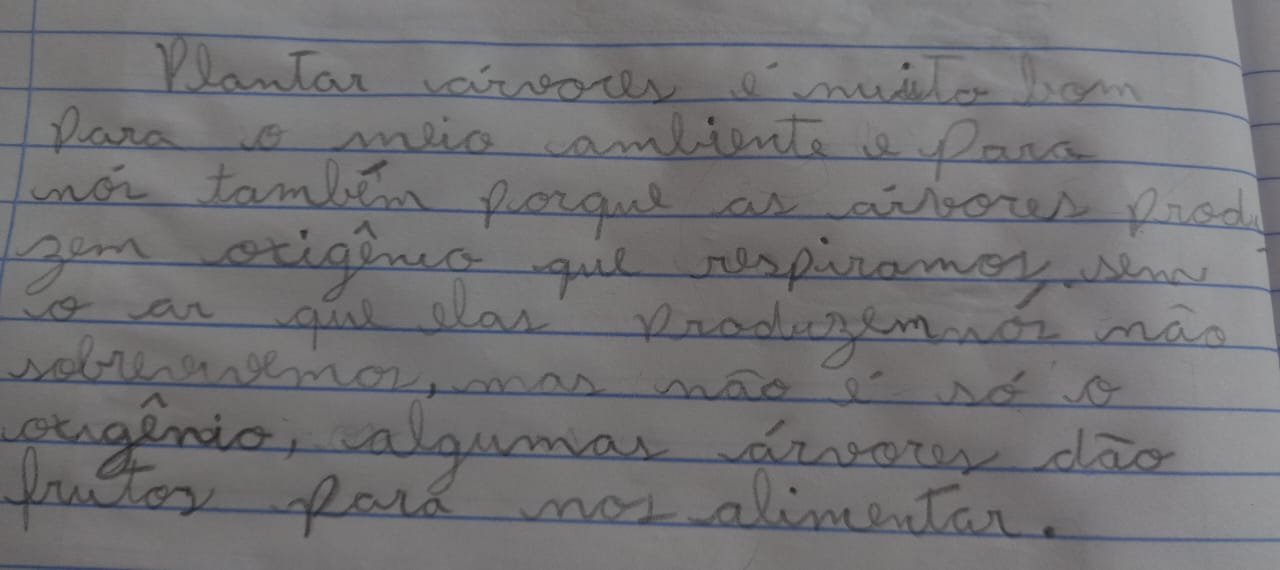 Plantar árvores é muito bom
para o meio ambiente e para
nós também porque as árvores produ
zem oxigênio que respiramos, sem
o ar que elas produzem nós não
sobrevivemos, mas não é só o
oxigênio, algumas árvores dão
frutos para nos alimentar.